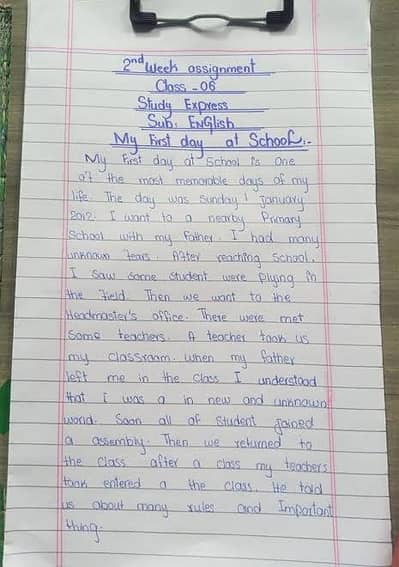 2nd Week assignment
Class - 06
Study Express
Sub: English
My First day at School:-
My First day at School is One
of the most memorable days of my
life. The day was Sunday 1 January
2012. I want to a nearby Primary
School with my Father. I had many
unknown fears. After reaching School.
I Saw Some Student were plying in
the Field. Then we want to the
Headmaster's office. There were met
Some teachers. A teacher took us
my classroom. when my father
left me in the Class I understood
that I was a in new and unknown
world. Soon all of Student joined
a assembly. Then we returned to
the Class after a class my teachers
took entered a the class. He told
us about many rules and Important
thing.